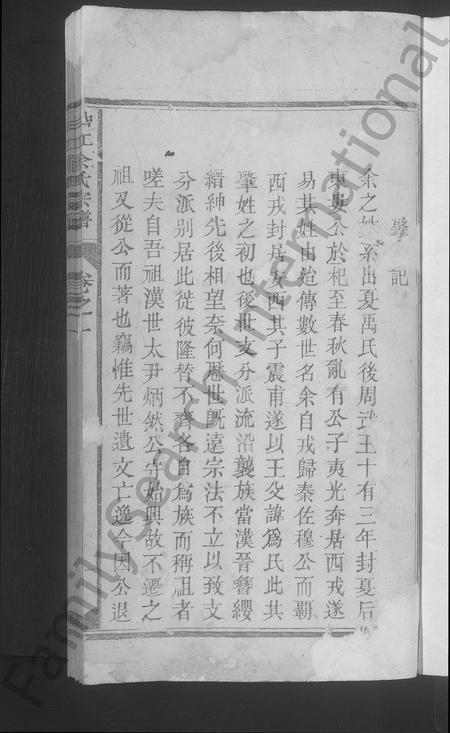 肇記
余之姓系出夏禹氏後周武王十有三年封夏后
東婁公於杞至春秋亂有公子夷光奔居西戎遂
易其姓由始傳數世名余自戎歸秦佐穆公而霸
西戎封居安西其子震甫遂以王父諱爲氏此其
肇姓之初也後世支分派流沿襲族當漢晉簪纓
縉紳先後相望奈何厯世旣遠宗法不立以致支
分派别居此從彼隆替不齊各自爲族而稱祖者
嗟夫自吾祖漢世太尹炳然公守始興故不遷之
祖又從公而著也竊惟先世遺文亡逸今因公退
江余氏宗譜
卷之一
FamilySearch International